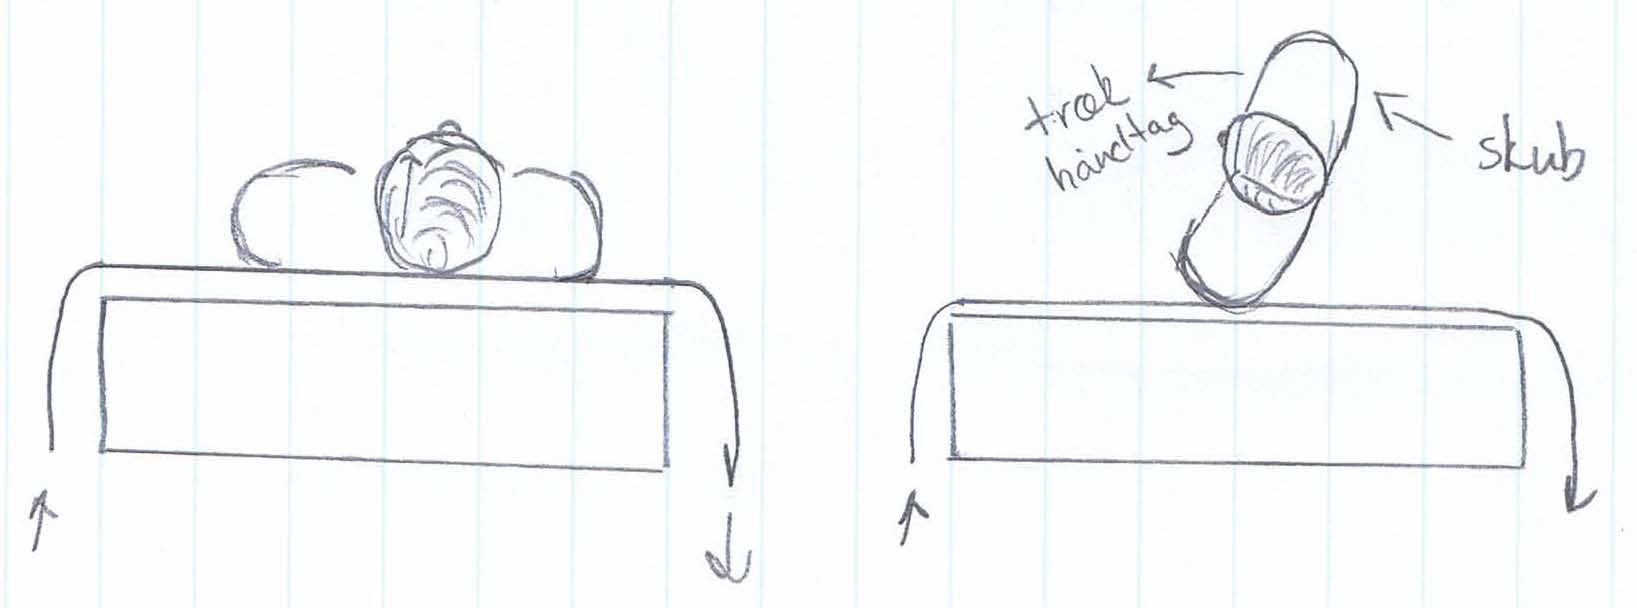 træk
håndtag
skub